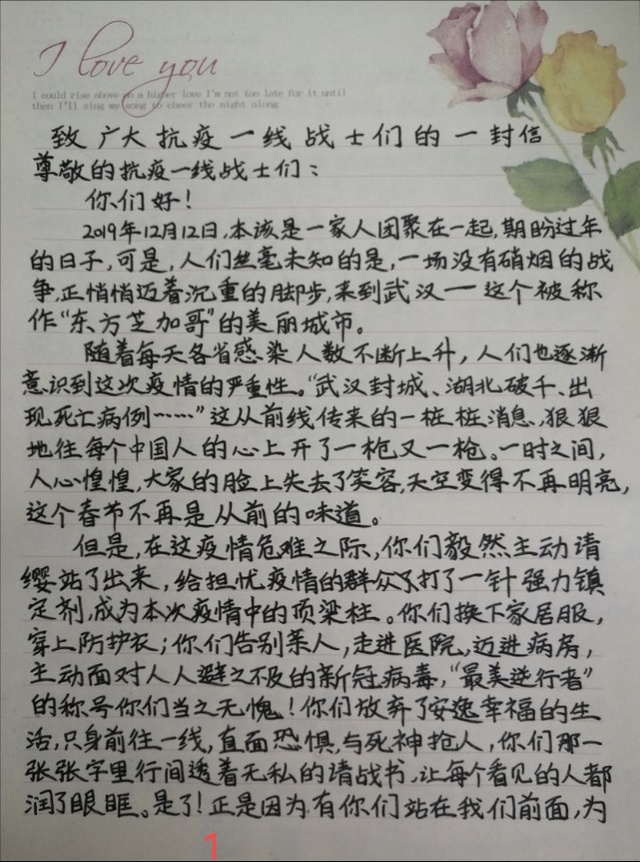 I love you
I could rise above on a higher love I'm not too late for it until
then I'll sing my song to cheer the night along
致广大抗疫一线战士们的一封信
尊敬的抗疫一线战士们：
你们好！
2019年12月12日，本该是一家人团聚在一起，期盼过年
的日子，可是，人们丝毫未知的是，一场没有硝烟的战
争，正悄悄迈着沉重的脚步，来到武汉——这个被称
作“东方芝加哥”的美丽城市。
随着每天各省感染人数不断上升，人们也逐渐
意识到这次疫情的严重性。“武汉封城、湖北破千、出
现死亡病例……”这从前线传来的一桩桩消息，狠狠
地往每个中国人的心上开了一枪又一枪。一时之间，
人心惶惶，大家的脸上失去了笑容，天空变得不再明亮，
这个春节不再是从前的味道。
但是，在这疫情危难之际，你们毅然主动请
缨站了出来，给担忧疫情的群众打了一针强力镇
定剂，成为本次疫情中的顶梁柱。你们换下家居服，
穿上防护衣；你们告别亲人，走进医院，迈进病房，
主动面对人人避之不及的新冠病毒，“最美逆行者”
的称号你们当之无愧！你们放弃了安逸幸福的生
活，只身前往一线，直面恐惧，与死神抢人，你们那一
张张字里行间透着无私的请战书，让每个看见的人都
润了眼眶。是了！正是因为有你们站在我们前面，为
1